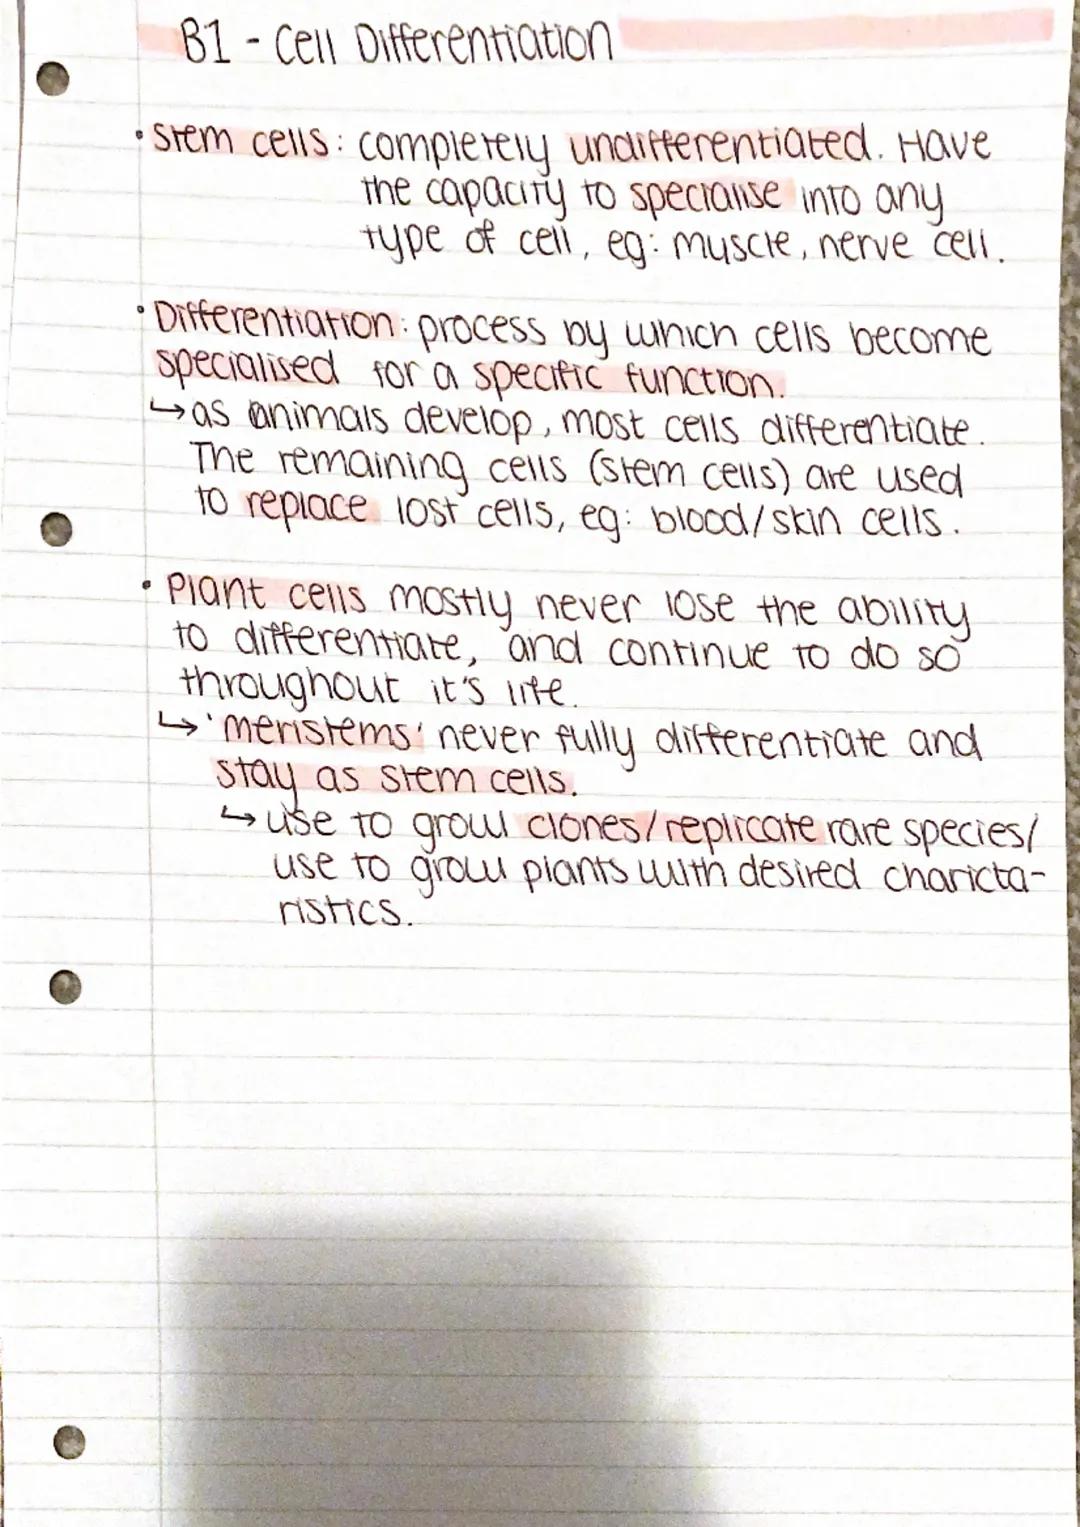 B1 - Cell Differentiation
• Stem cells: completely undifferentiated. Have
the capacity to specialise into any
type of cell, eg: muscle, nerve cell.
• Differentiation: process by which cells become
specialised for a specific function.
↳ as animals develop, most cells differentiate.
The remaining cells (stem cells) are used
to replace lost cells, eg: blood/skin cells.
• Plant cells mostly never lose the ability
to differentiate, and continue to do so
throughout it's life.
↳ 'meristems' never fully differentiate and
stay as stem cells.
↳ use to grow clones/replicate rare species/
use to grow plants with desired charicta-
ristics.